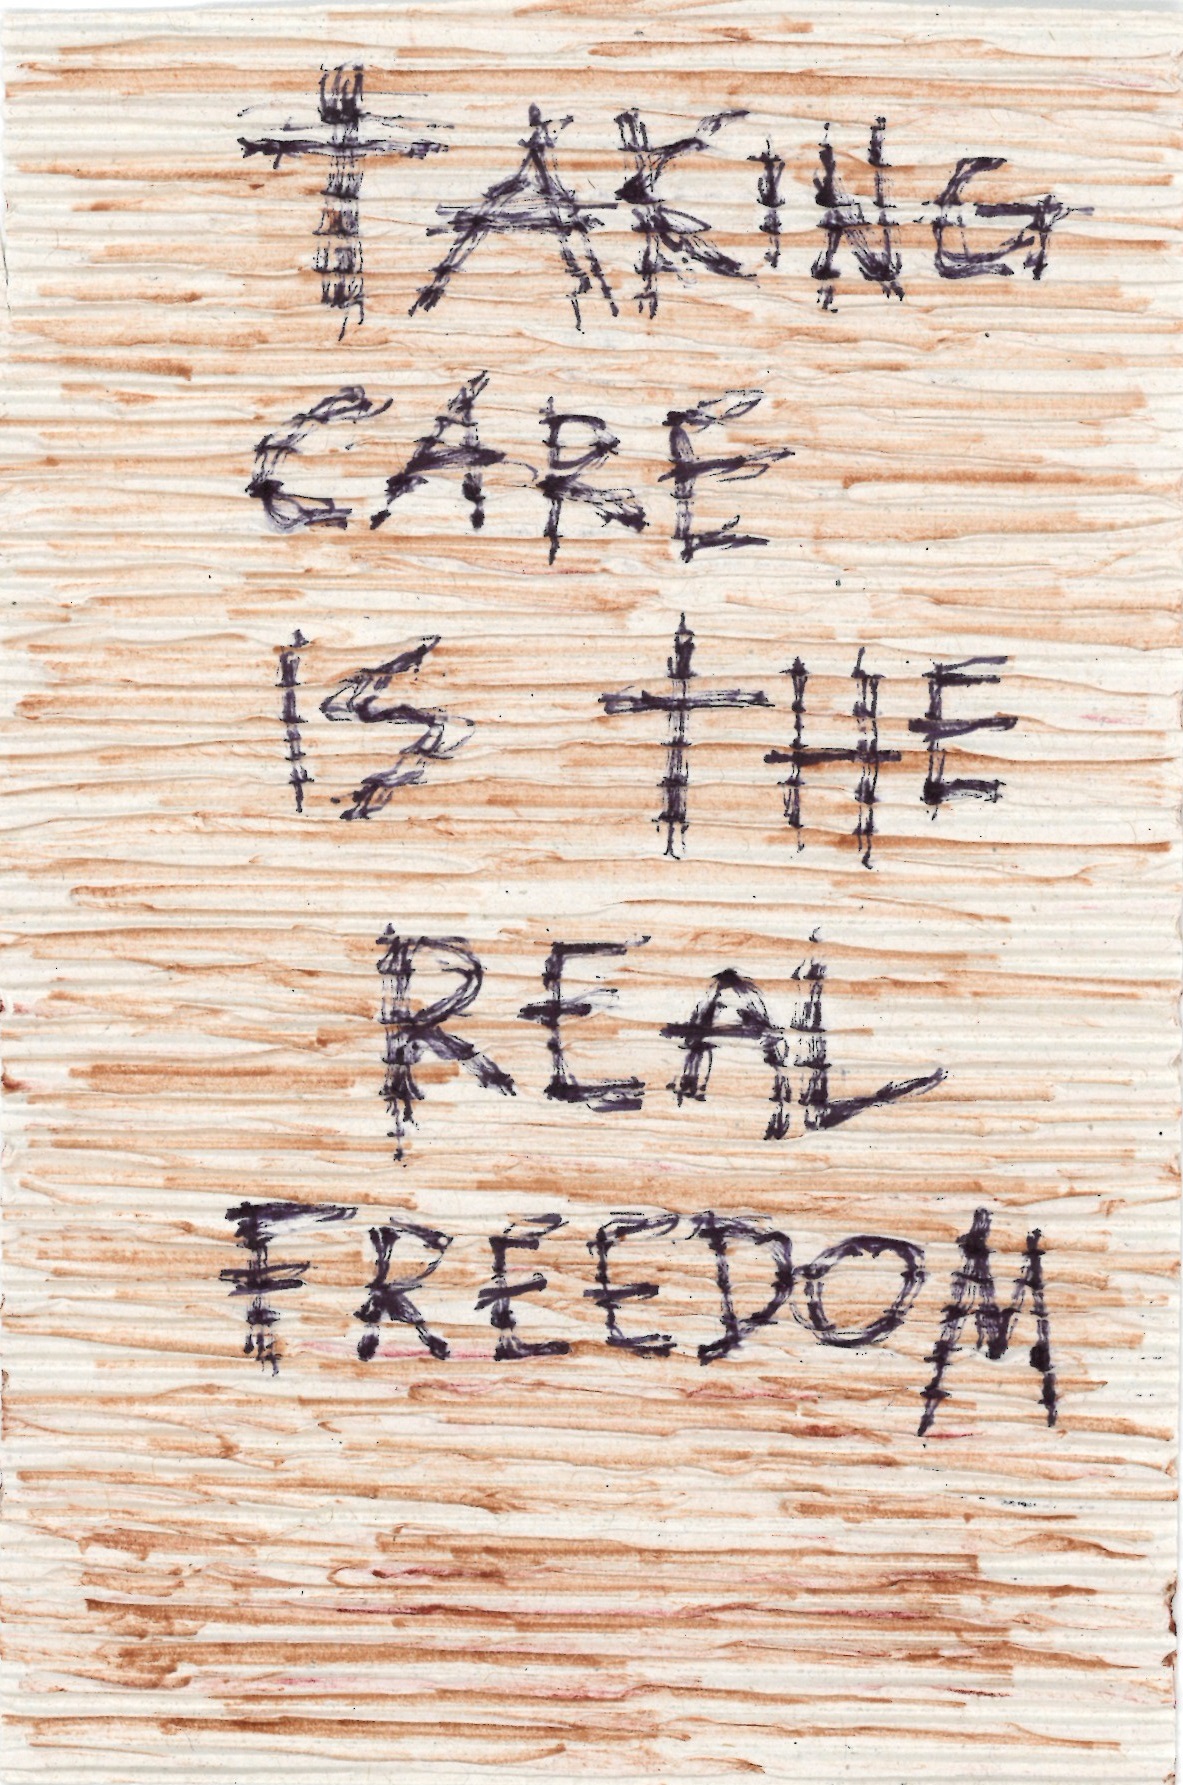 TAKING
CARE
IS THE
REAL
FREEDOM